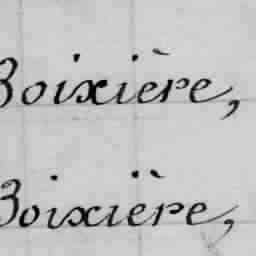 Boixière,
Boixière,